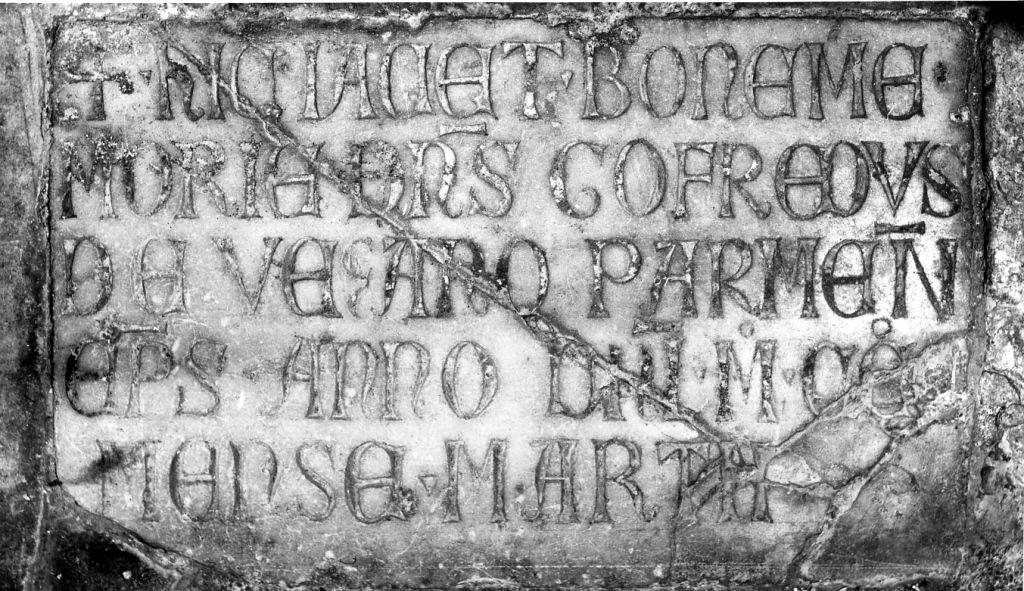 ✝ · HIC IACET · BONE ME
MORIE DN̄S GOFREDVS
DE VEÇANO PARMEN̄
EP̄S ANNO DN̄I · M̊ · CC̊
MENSE · MARTII